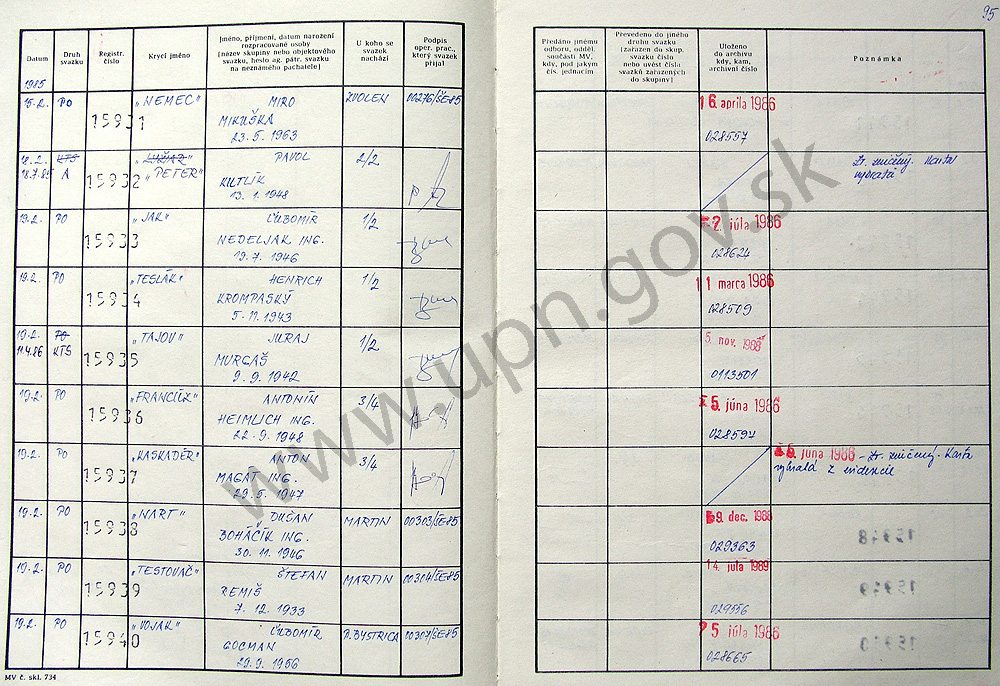 95
Datum
Druh svazku
Registr. číslo
Krycí jméno
Jméno, příjmení, datum narození
rozpracované osoby
(název skupiny nebo objektového
svazku, heslo ag. pátr. svazku
na neznámého pachatele)
U koho se
svazek
nachází
Podpis
oper. prac.,
který svazek
přijal
Předáno jinému
odboru, odděl.
součásti MV,
kdy, pod jakým
čís. jednacím
Převedeno do jiného
druhu svazku
(zařazen do skup.
svazku číslo
nebo uvést čísla
svazků zařazených
do skupiny)
Uloženo
do archivu
kdy, kam,
archivní číslo
Poznámka
1985
15.2. PO 15931 „NEMEC" MIRO ZVOLEN 00276/ŠE85 16. apríla 1986
MIKUŠKA 028557
23. 5. 1963
18.2. KTS „LUŽAR" PAVOL 2/2 Zv. zničený. Karta
18.7.85 A 15932 „PETER" KUTLÍK vybratá
13. 1. 1948
19.2. PO 15933 „JAK" ĽUBOMÍR 1/2 2. júla 1986
NEDELJAK ING. 028624
19. 7. 1946
19.2. PO 15934 „TESLÁK" HENRICH 1/2 11 marca 1986
KROMPASKÝ 028509
5. 11. 1943
19.2. PO 15935 „TAJOV" JURAJ 1/2 5. nov. 1988
11.4.86 KTS MURGAŠ 0113501
9. 9. 1942
19.2. PO 15936 „FRANCÚZ" ANTONÍN 3/4 5. júna 1986
HEIMLICH ING. 028597
22. 9. 1948
19.2. PO 15937 „KASKADÉR" ANTON 3/4 6. júna 1986 – Zv. zničený. Karta
MAGÁT ING. vybratá z evidencie
29. 5. 1947
19.2. PO 15938 „NART" DUŠAN MARTIN 00303/ŠE85 9. dec. 1988
BOHÁČIK ING. 029363
30. 11. 1946
19.2. PO 15939 „TESTOVAČ" ŠTEFAN MARTIN 00304/ŠE85 14. júla 1989
REMIŠ 029556
7. 12. 1933
19.2. PO 15940 „VOJAK" ĽUBOMÍR B.BYSTRICA 00307/ŠE85 5 júla 1986
GOCMAN 028665
29. 9. 1956
MV č. skl. 734
www.upn.gov.sk